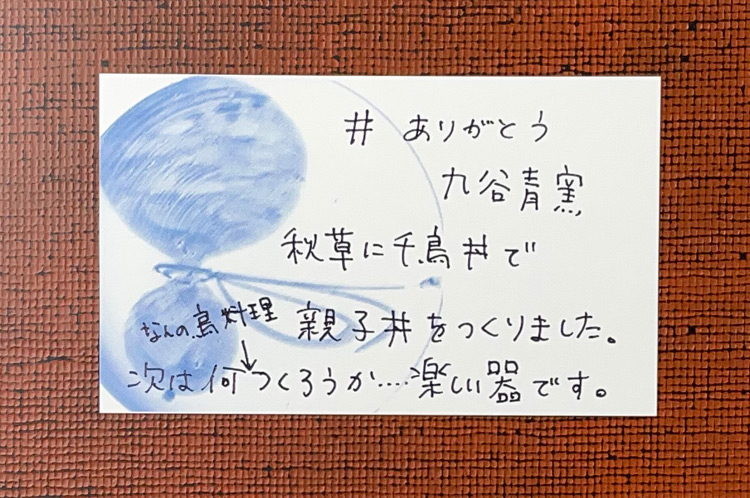 # ありがとう
九谷青窯
秋草に千鳥丼で
親子丼をつくりました。
なんの鳥料理
次は何つくろうか....楽しい器です。